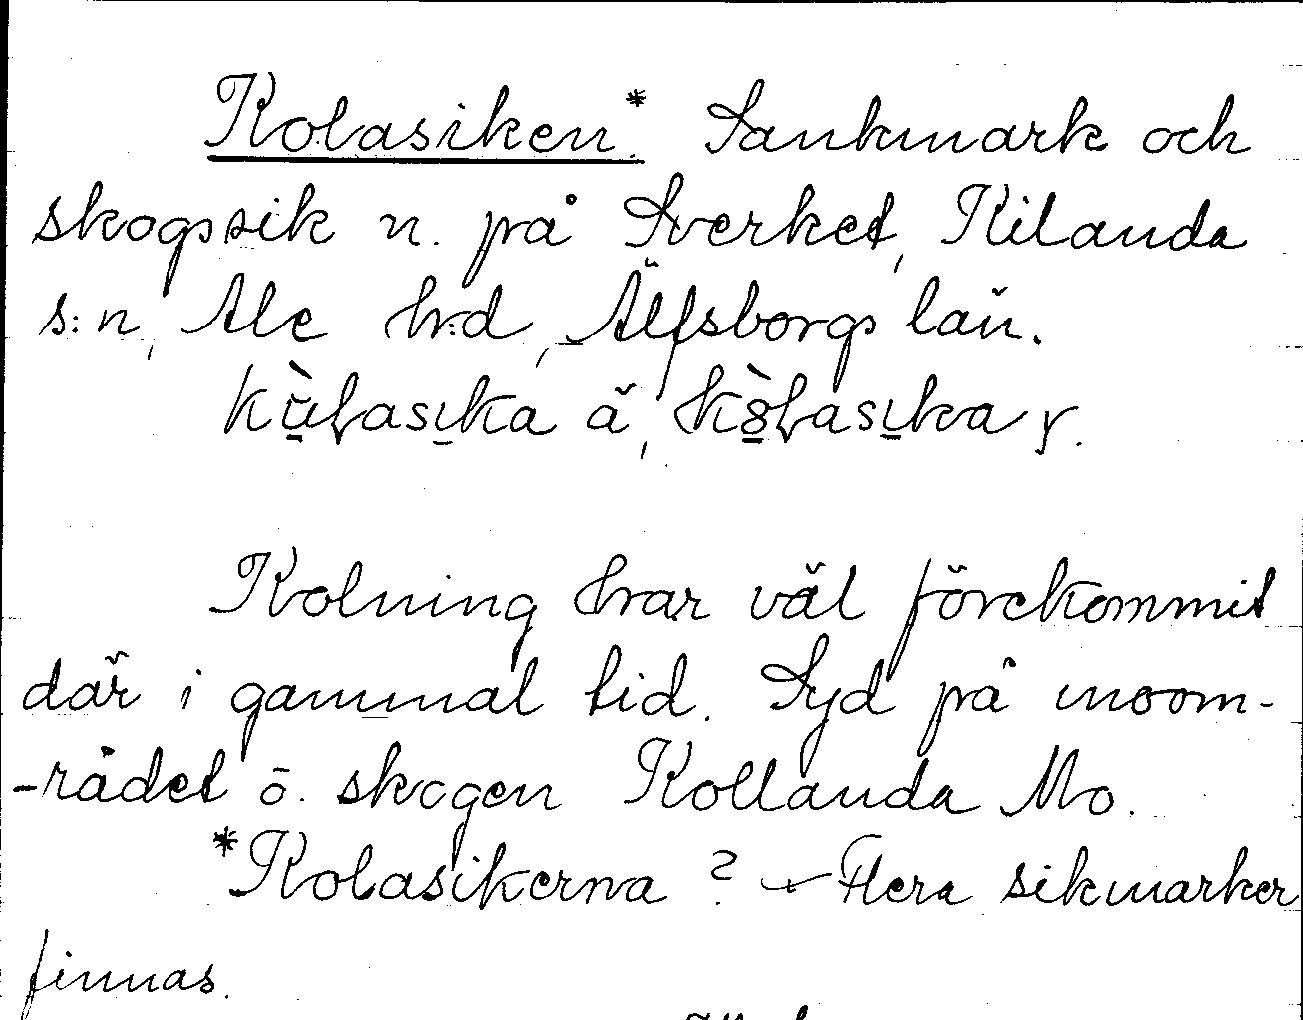 Kolasiken.* Sankmark och
skogssik n. på Sverket, Kilanda
s:n, Ale hrd, Älfsborgs län.
kùlasika ä, kòlasika y.
Kolning har väl förekommit
där i gammal tid. Syd på moom-
-rådet ö. skogen Kollanda Mo.
*Kolasikerna? Flera sikmarker
finnas.